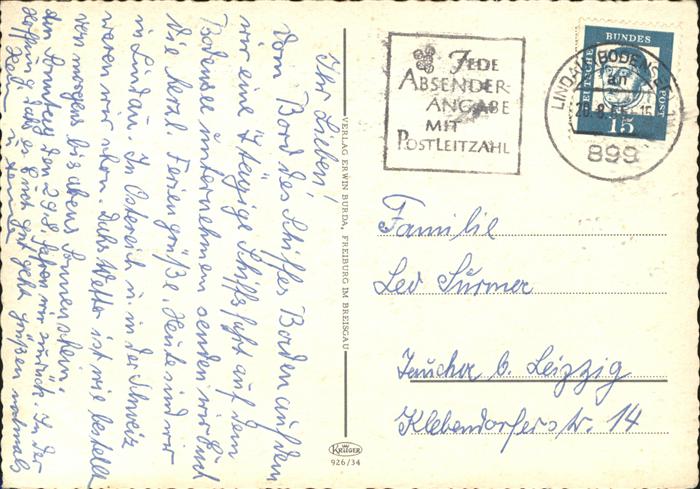 Ihr Lieben!
Vom Bord des Schiffes Baden auf dem
wir eine 7tägige Schiffsfahrt auf dem
Bodensee unternehmen senden wir Euch
die Feriengrüße. Heute sind wir
in Lindau. In Östereich u. in der Schweiz
waren wir schon. Das Wetter ist wie bestellt
von morgens bis abends Sonnenschein.
den 29.8. fahren wir zurück. In der
Hoffnung daß es Euch gut geht grüßen nochmals
VERLAG ERWIN BURDA, FREIBURG IM BREISGAU
KRÜGER
926/34
JEDE
ABSENDER-
ANGABE
MIT
POSTLEITZAHL
LINDAU (BODENSEE)
899
DEUTSCHE BUNDESPOST
15
Familie
Leo Sürmer
Taucha b. Leipzig
Klebendorferstr. 14